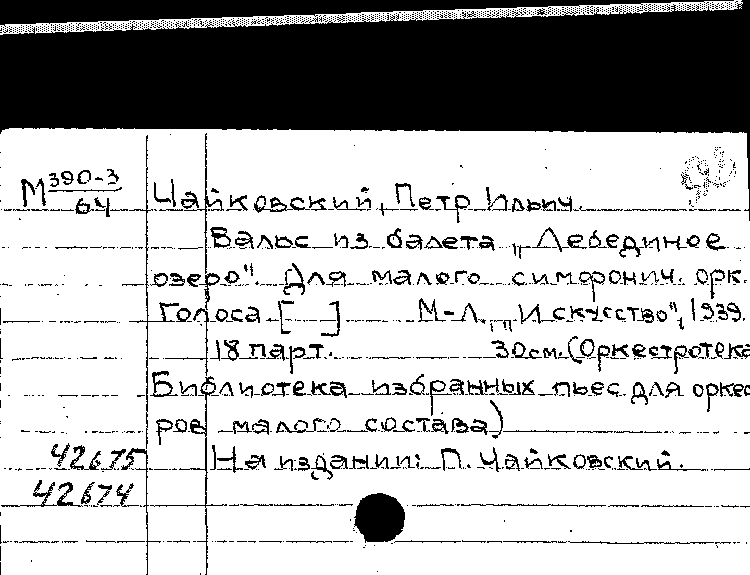 М 390-3/64
Чайковский, Петр Ильич.
Вальс из балета „Лебединое
озеро". Для малого симфонич. орк.
Голоса. [ ] М-Л., „Искусство", 1939.
18 парт. 30см. (Оркестротека
Библиотека избранных пьес для оркес
ров малого состава)
42675 На издании: П. Чайковский.
42674